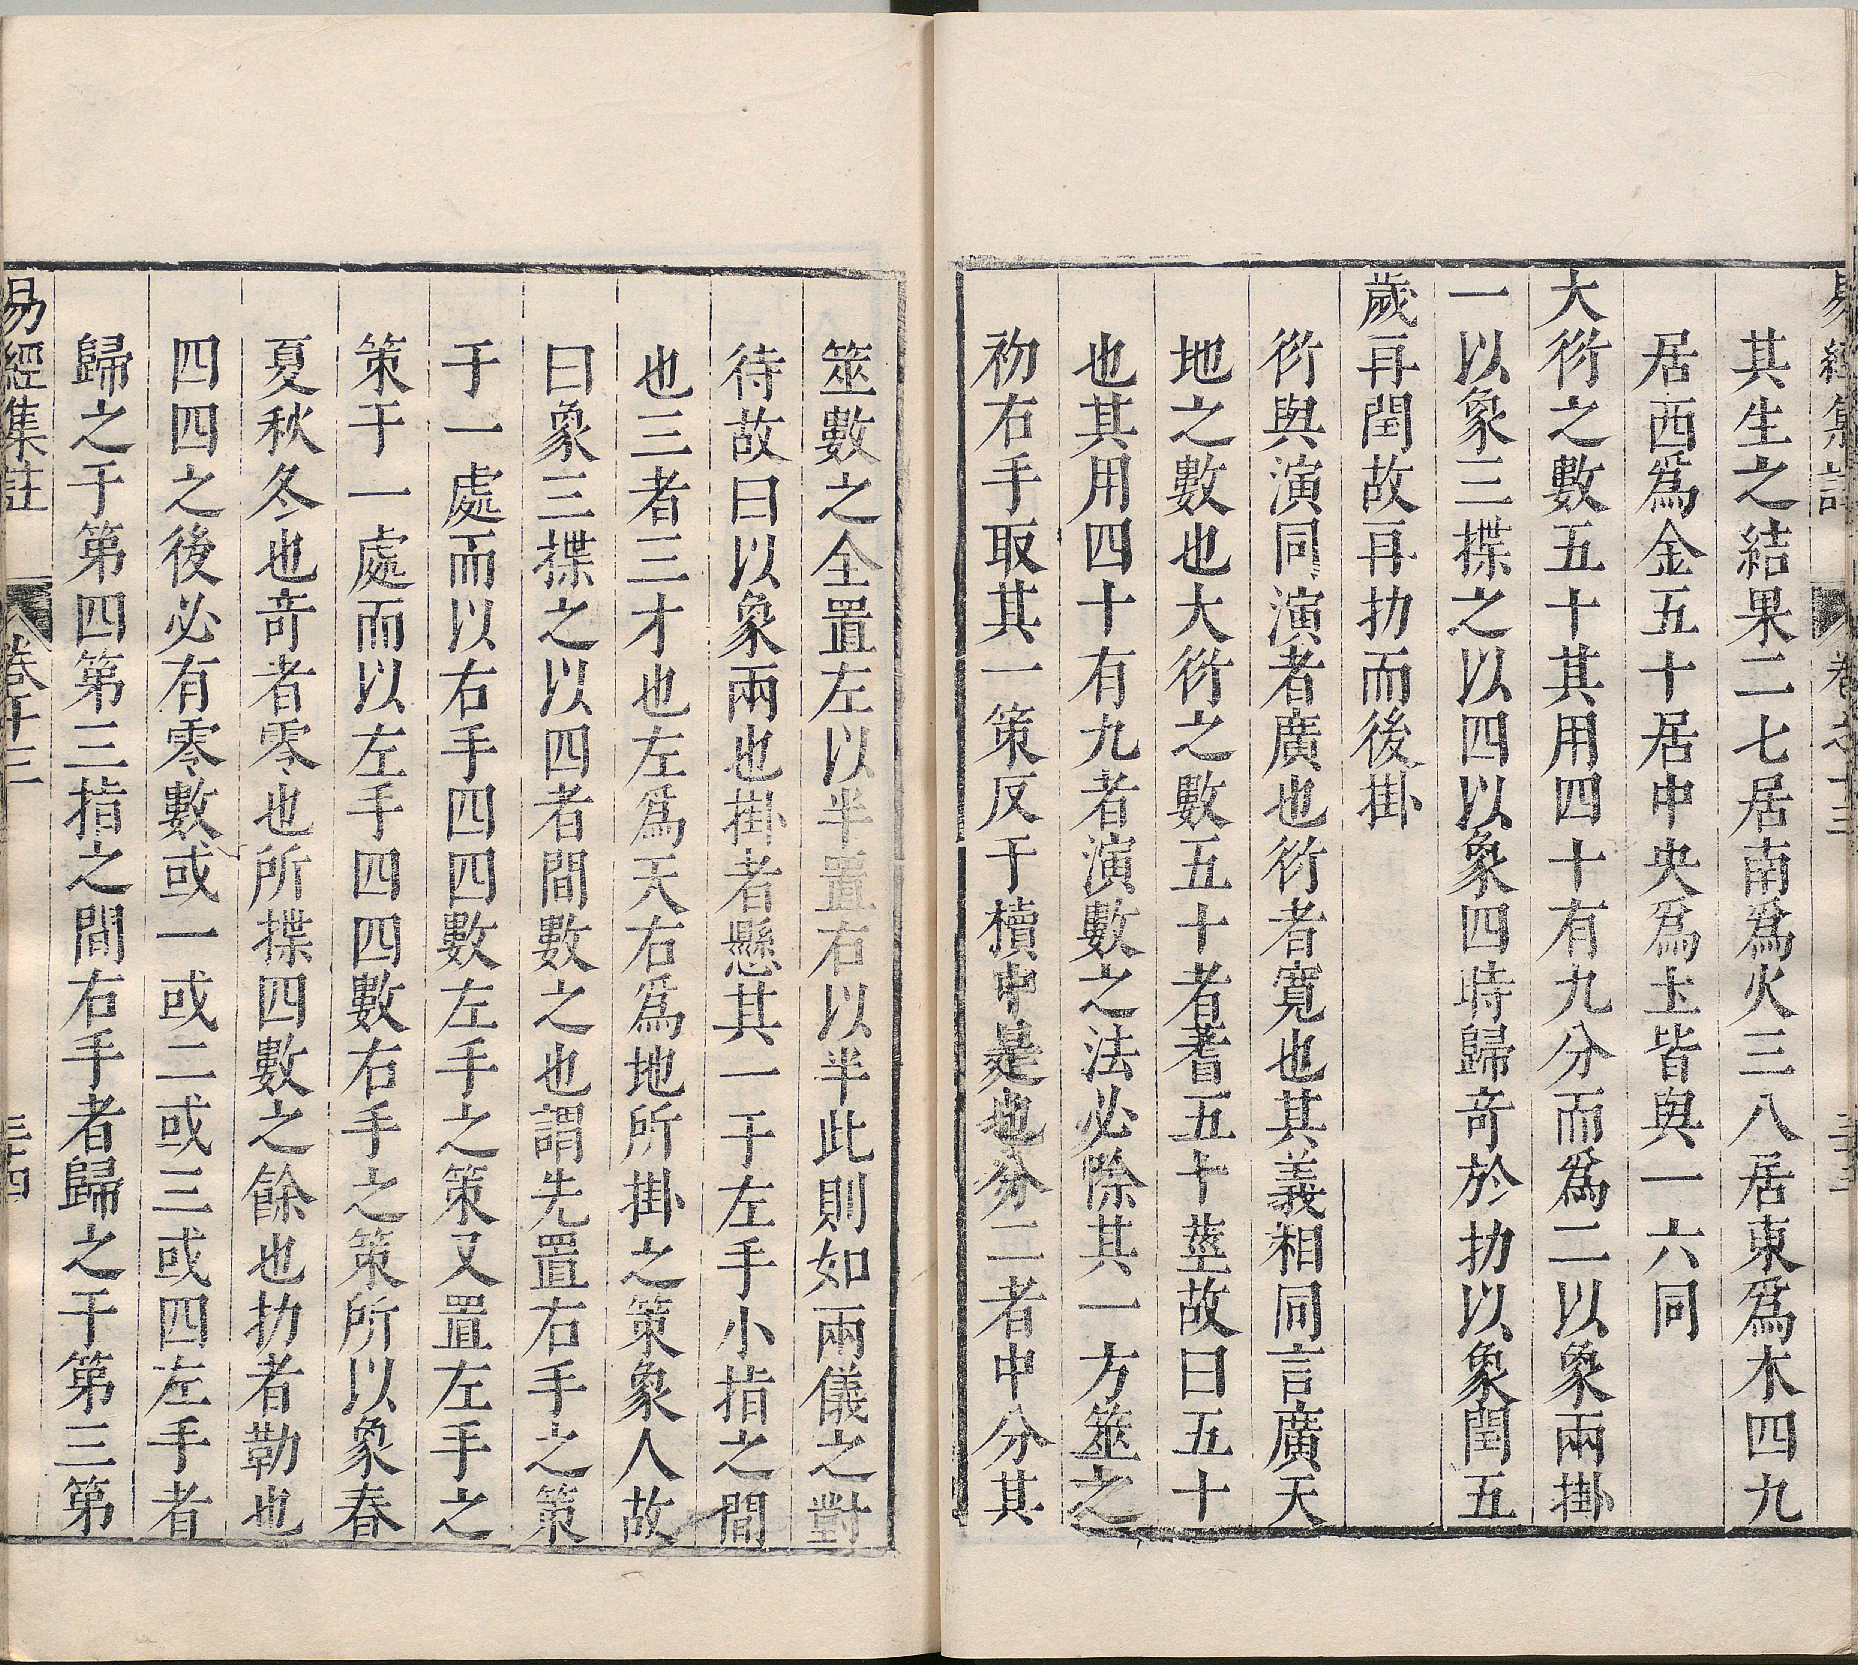 易經集註 卷之十三 三十三
其生之結果二七居南爲火三八居東爲木四九
居西爲金五十居中央爲土皆與一六同
大衍之數五十其用四十有九分而爲二以象兩掛
一以象三揲之以四以象四時歸奇於扐以象閏五
歲再閏故再扐而後掛
衍與演同演者廣也衍者寬也其義相同言廣天
地之數也大衍之數五十者蓍五十莖故曰五十
也其用四十有九者演數之法必除其一方筮之
初右手取其一策反于櫝中是也分二者中分其
筮數之全置左以半置右以半此則如兩儀之對
待故曰以象兩也掛者懸其一于左手小指之間
也三者三才也左爲天右爲地所掛之策象人故
曰象三揲之以四者間數之也謂先置右手之策
于一處而以右手四四數左手之策又置左手之
策于一處而以左手四四數右手之策所以象春
夏秋冬也奇者零也所揲四數之餘也扐者勒也
四四之後必有零數或一或二或三或四左手者
歸之于第四第三指之間右手者歸之于第三第
易經集註 卷十三 三十四